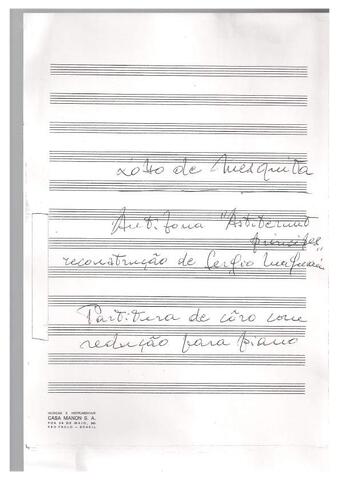 Lobo de Mesquita
Antífona "Astiterunt
principes"
reconstrução de Sergio Magnani
Partitura de côro com
redução para piano
MUSICAS E INSTRUMENTOS
CASA MANON S. A.
RUA 24 DE MAIO, 242
SÃO PAULO - BRASIL